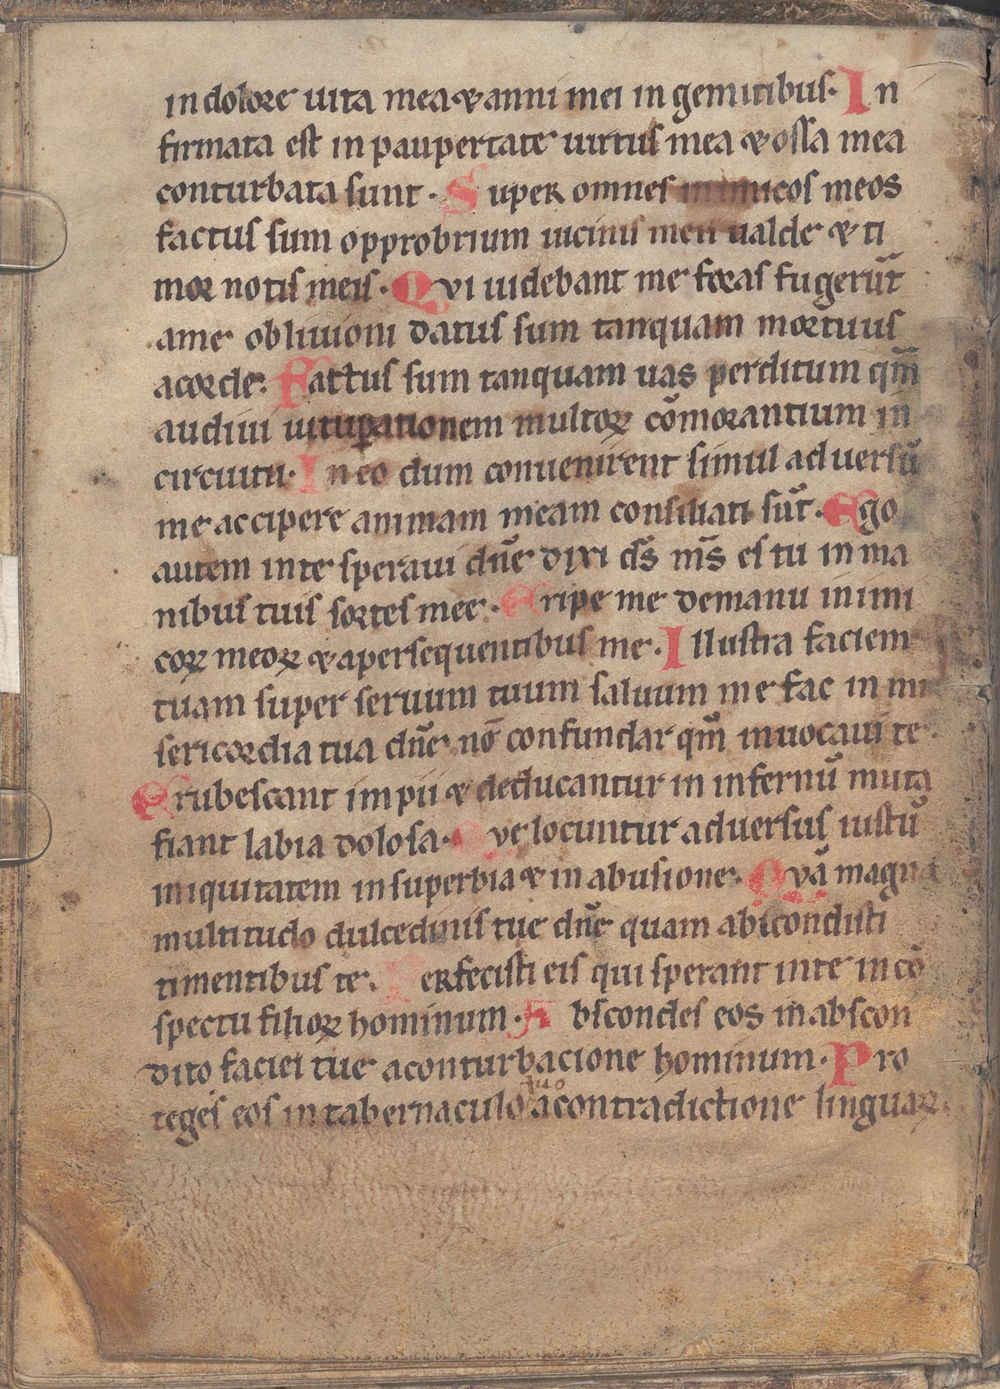 in dolore uita mea & anni mei in gemitibus. In
firmata est in paupertate uirtus mea & ossa mea
conturbata sunt. Super omnes inimicos meos
factus sum opprobrium uicinis meis ualde & ti
mor notis meis. Qvi uidebant me foras fugerūt
ame obliuioni datus sum tanquam mortuus
acorde. Factus sum tanquam uas perditum qm̄
audiui uituꝑationem multoꝝ cōmorantium in
circuitu. In eo dum conuenirent simul aduersū
me accipere animam meam consiliati sūt. Ego
autem inte speraui dn̄e dixi ds̄ ms̄ es tu in ma
nibus tuis sortes mee. Eripe me demanu inimi
coꝝ meoꝝ & apersequentibus me. Illustra faciem
tuam super seruum tuum saluum me fac in mi
sericordia tua dn̄e nō confundar qm̄ inuocaui te.
Erubescant impii & deducantur in infernū muta
fiant labia dolosa. Qve locuntur aduersus iustū
iniquitatem insuperbia & in abusione. Qvā magna
multitudo dulcedinis tue dn̄e quam abscondisti
timentibus te. Perfecisti eis qui sperant inte in cō
spectu filioꝝ hominum. Abscondes eos inabscon
dito faciei tue aconturbacione hominum. Pro
teges eos in tabernaculo tuo acontradictione linguaꝝ.